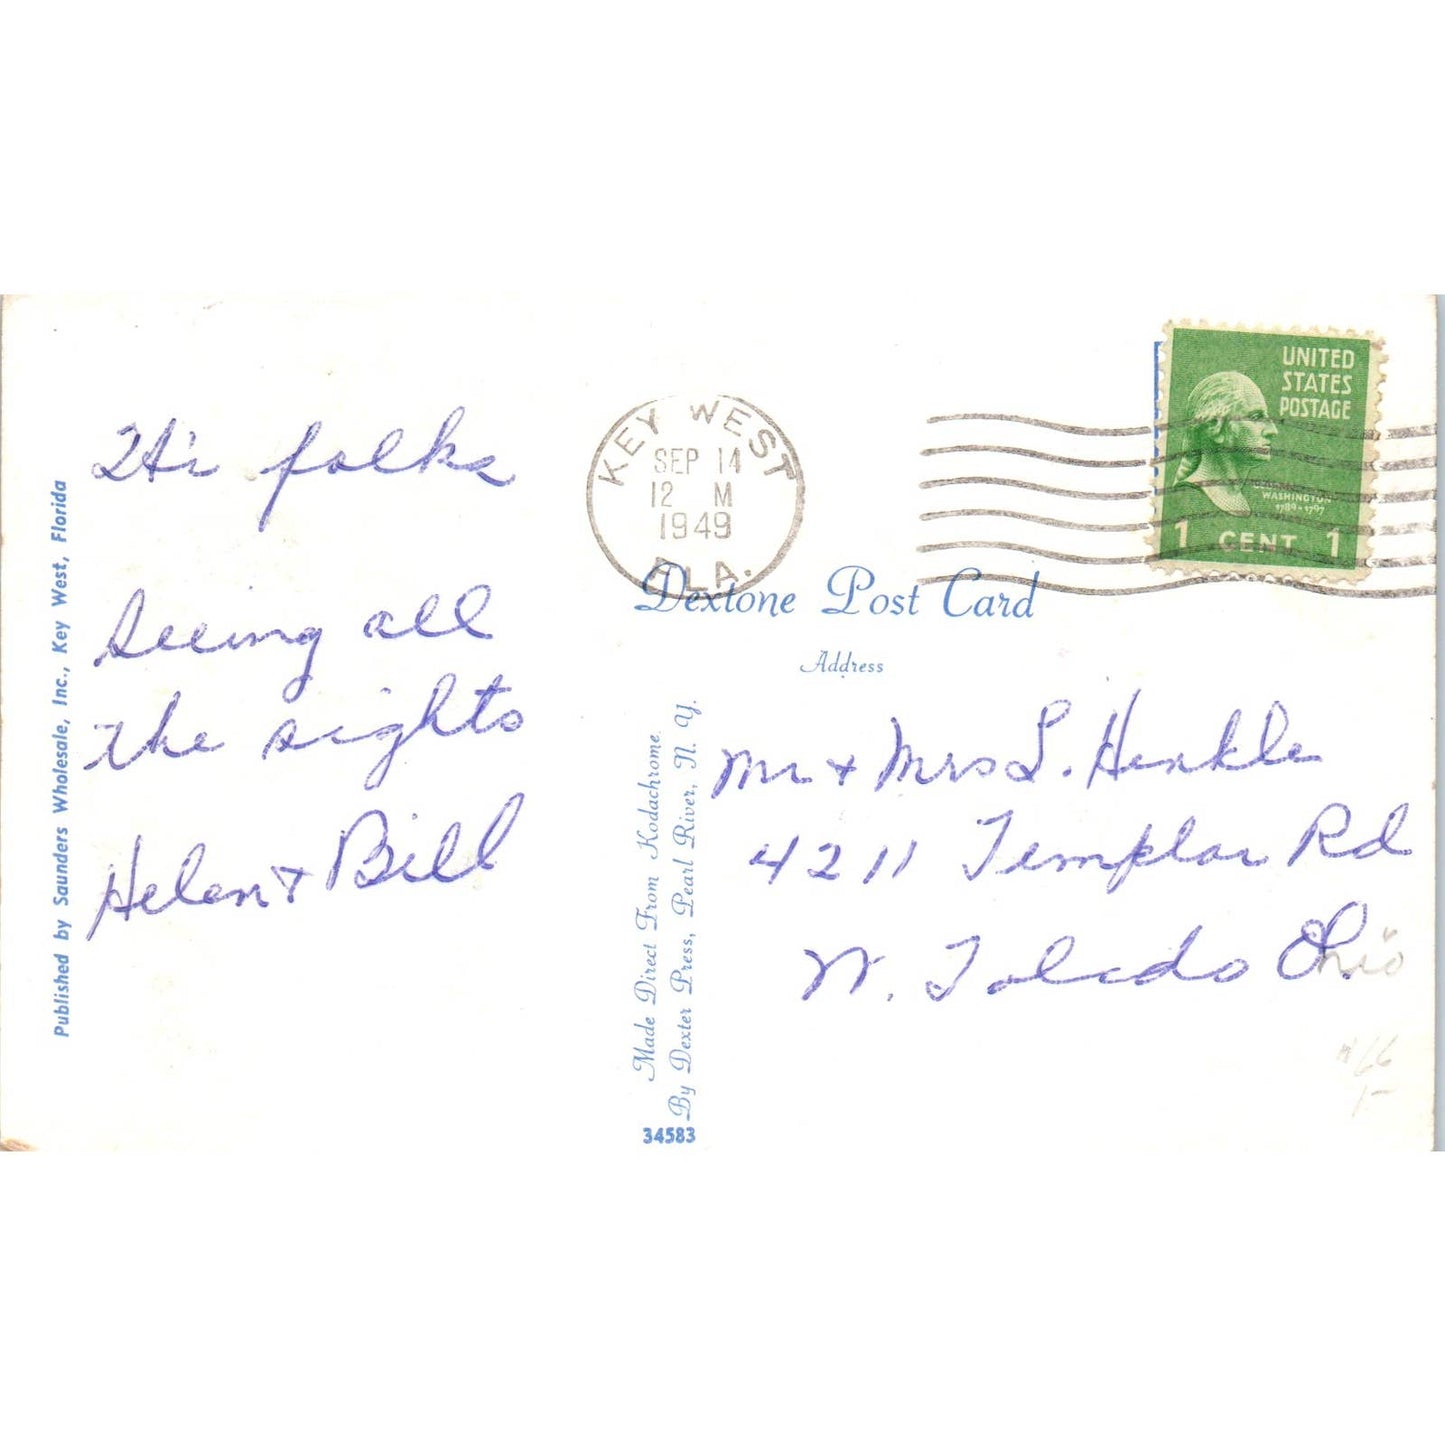 Hi folks
Seeing all
the sights
Helen + Bill
Published by Saunders Wholesale, Inc., Key West, Florida
KEY WEST
SEP 14
12 M
1949
FLA.
UNITED
STATES
POSTAGE
WASHINGTON
1789-1797
1 CENT 1
Dextone Post Card
Address
Made Direct From Kodachrome
By Dexter Press, Pearl River, N. Y.
34583
Mr + Mrs L. Henkle
4211 Templar Rd
W. Toledo Ohio
#66
1-